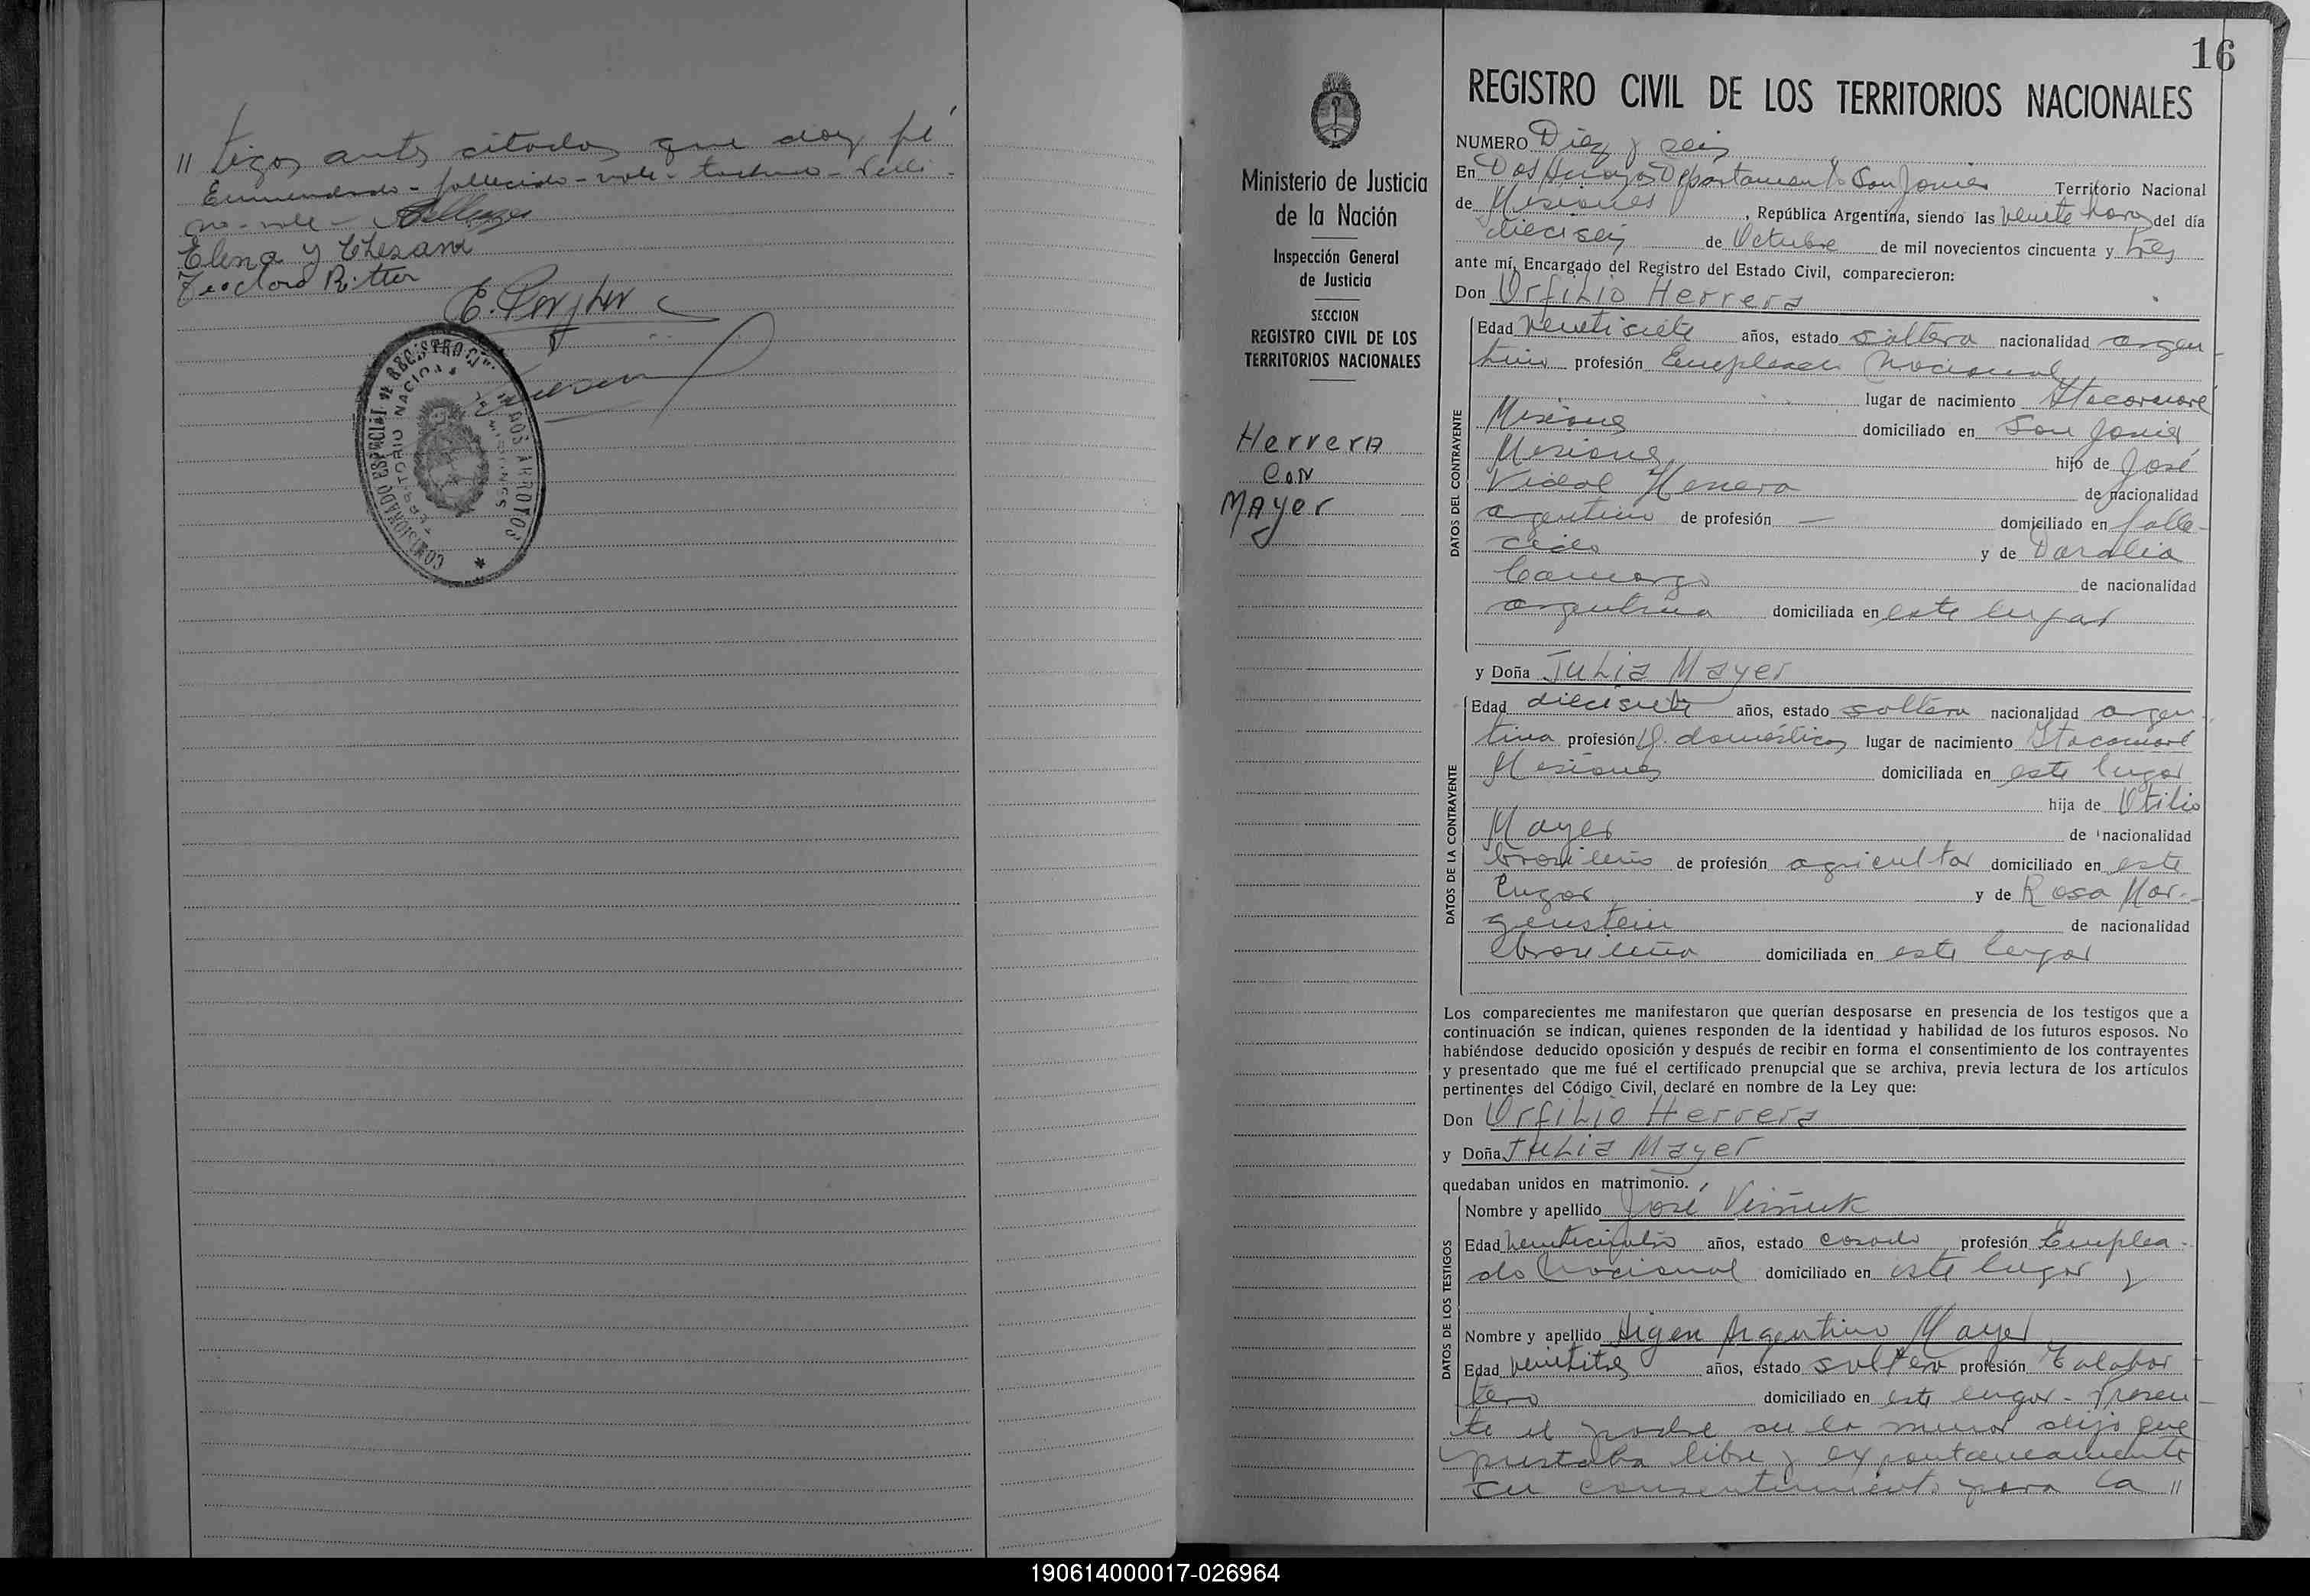 " tigos antes citados que doy fé
Enmendado - fallecido - vale - testado -
no - vale -
Elena y Chesani
Teodoro Ritter
REGISTRO CIVIL
COMISIONADO ESPECIAL
TERRITORIO NACIONAL
DOS ARROYOS
MISIONES
16
Ministerio de Justicia
de la Nación
Inspección General
de Justicia
SECCION
REGISTRO CIVIL DE LOS
TERRITORIOS NACIONALES
Herrera
con
Mayer
REGISTRO CIVIL DE LOS TERRITORIOS NACIONALES
NUMERO Diez y seis
En Dos Arroyos Departamento San Javier Territorio Nacional
de Misiones, República Argentina, siendo las veinte horas del día
dieciseis de Octubre de mil novecientos cincuenta y tres
ante mí, Encargado del Registro del Estado Civil, comparecieron:
Don Orfilio Herrera
DATOS DEL CONTRAYENTE
Edad veintisiete años, estado soltero nacionalidad argen-
tino profesión Empleado Nacional
lugar de nacimiento Itacaruaré
Misiones domiciliado en San Javier
Misiones hijo de José
Vidal Herrera de nacionalidad
argentino de profesión — domiciliado en falle-
cido y de
Camargo de nacionalidad
argentina domiciliada en este lugar
y Doña Julia Mayer
DATOS DE LA CONTRAYENTE
Edad diecisiete años, estado soltera nacionalidad argen-
tina profesión Q. domésticos lugar de nacimiento Itacaruaré
Misiones domiciliada en este lugar
hija de Otilio
Mayer de nacionalidad
brasileño de profesión agricultor domiciliado en este
lugar y de Rosa Mor-
genstein de nacionalidad
brasileña domiciliada en este lugar
Los comparecientes me manifestaron que querían desposarse en presencia de los testigos que a
continuación se indican, quienes responden de la identidad y habilidad de los futuros esposos. No
habiéndose deducido oposición y después de recibir en forma el consentimiento de los contrayentes
y presentado que me fué el certificado prenupcial que se archiva, previa lectura de los artículos
pertinentes del Código Civil, declaré en nombre de la Ley que:
Don Orfilio Herrera
y Doña Julia Mayer
quedaban unidos en matrimonio.
DATOS DE LOS TESTIGOS
Nombre y apellido José
Edad veinticinco años, estado casado profesión Emplea-
do Nacional domiciliado en este lugar y
Nombre y apellido Higen Argentino Mayer
Edad veintitres años, estado soltero profesión Talabar-
tero domiciliado en este lugar - Presen-
te el padre de la menor dijo que
prestaba libre y expontaneamente
su consentimiento para la "
190614000017-026964